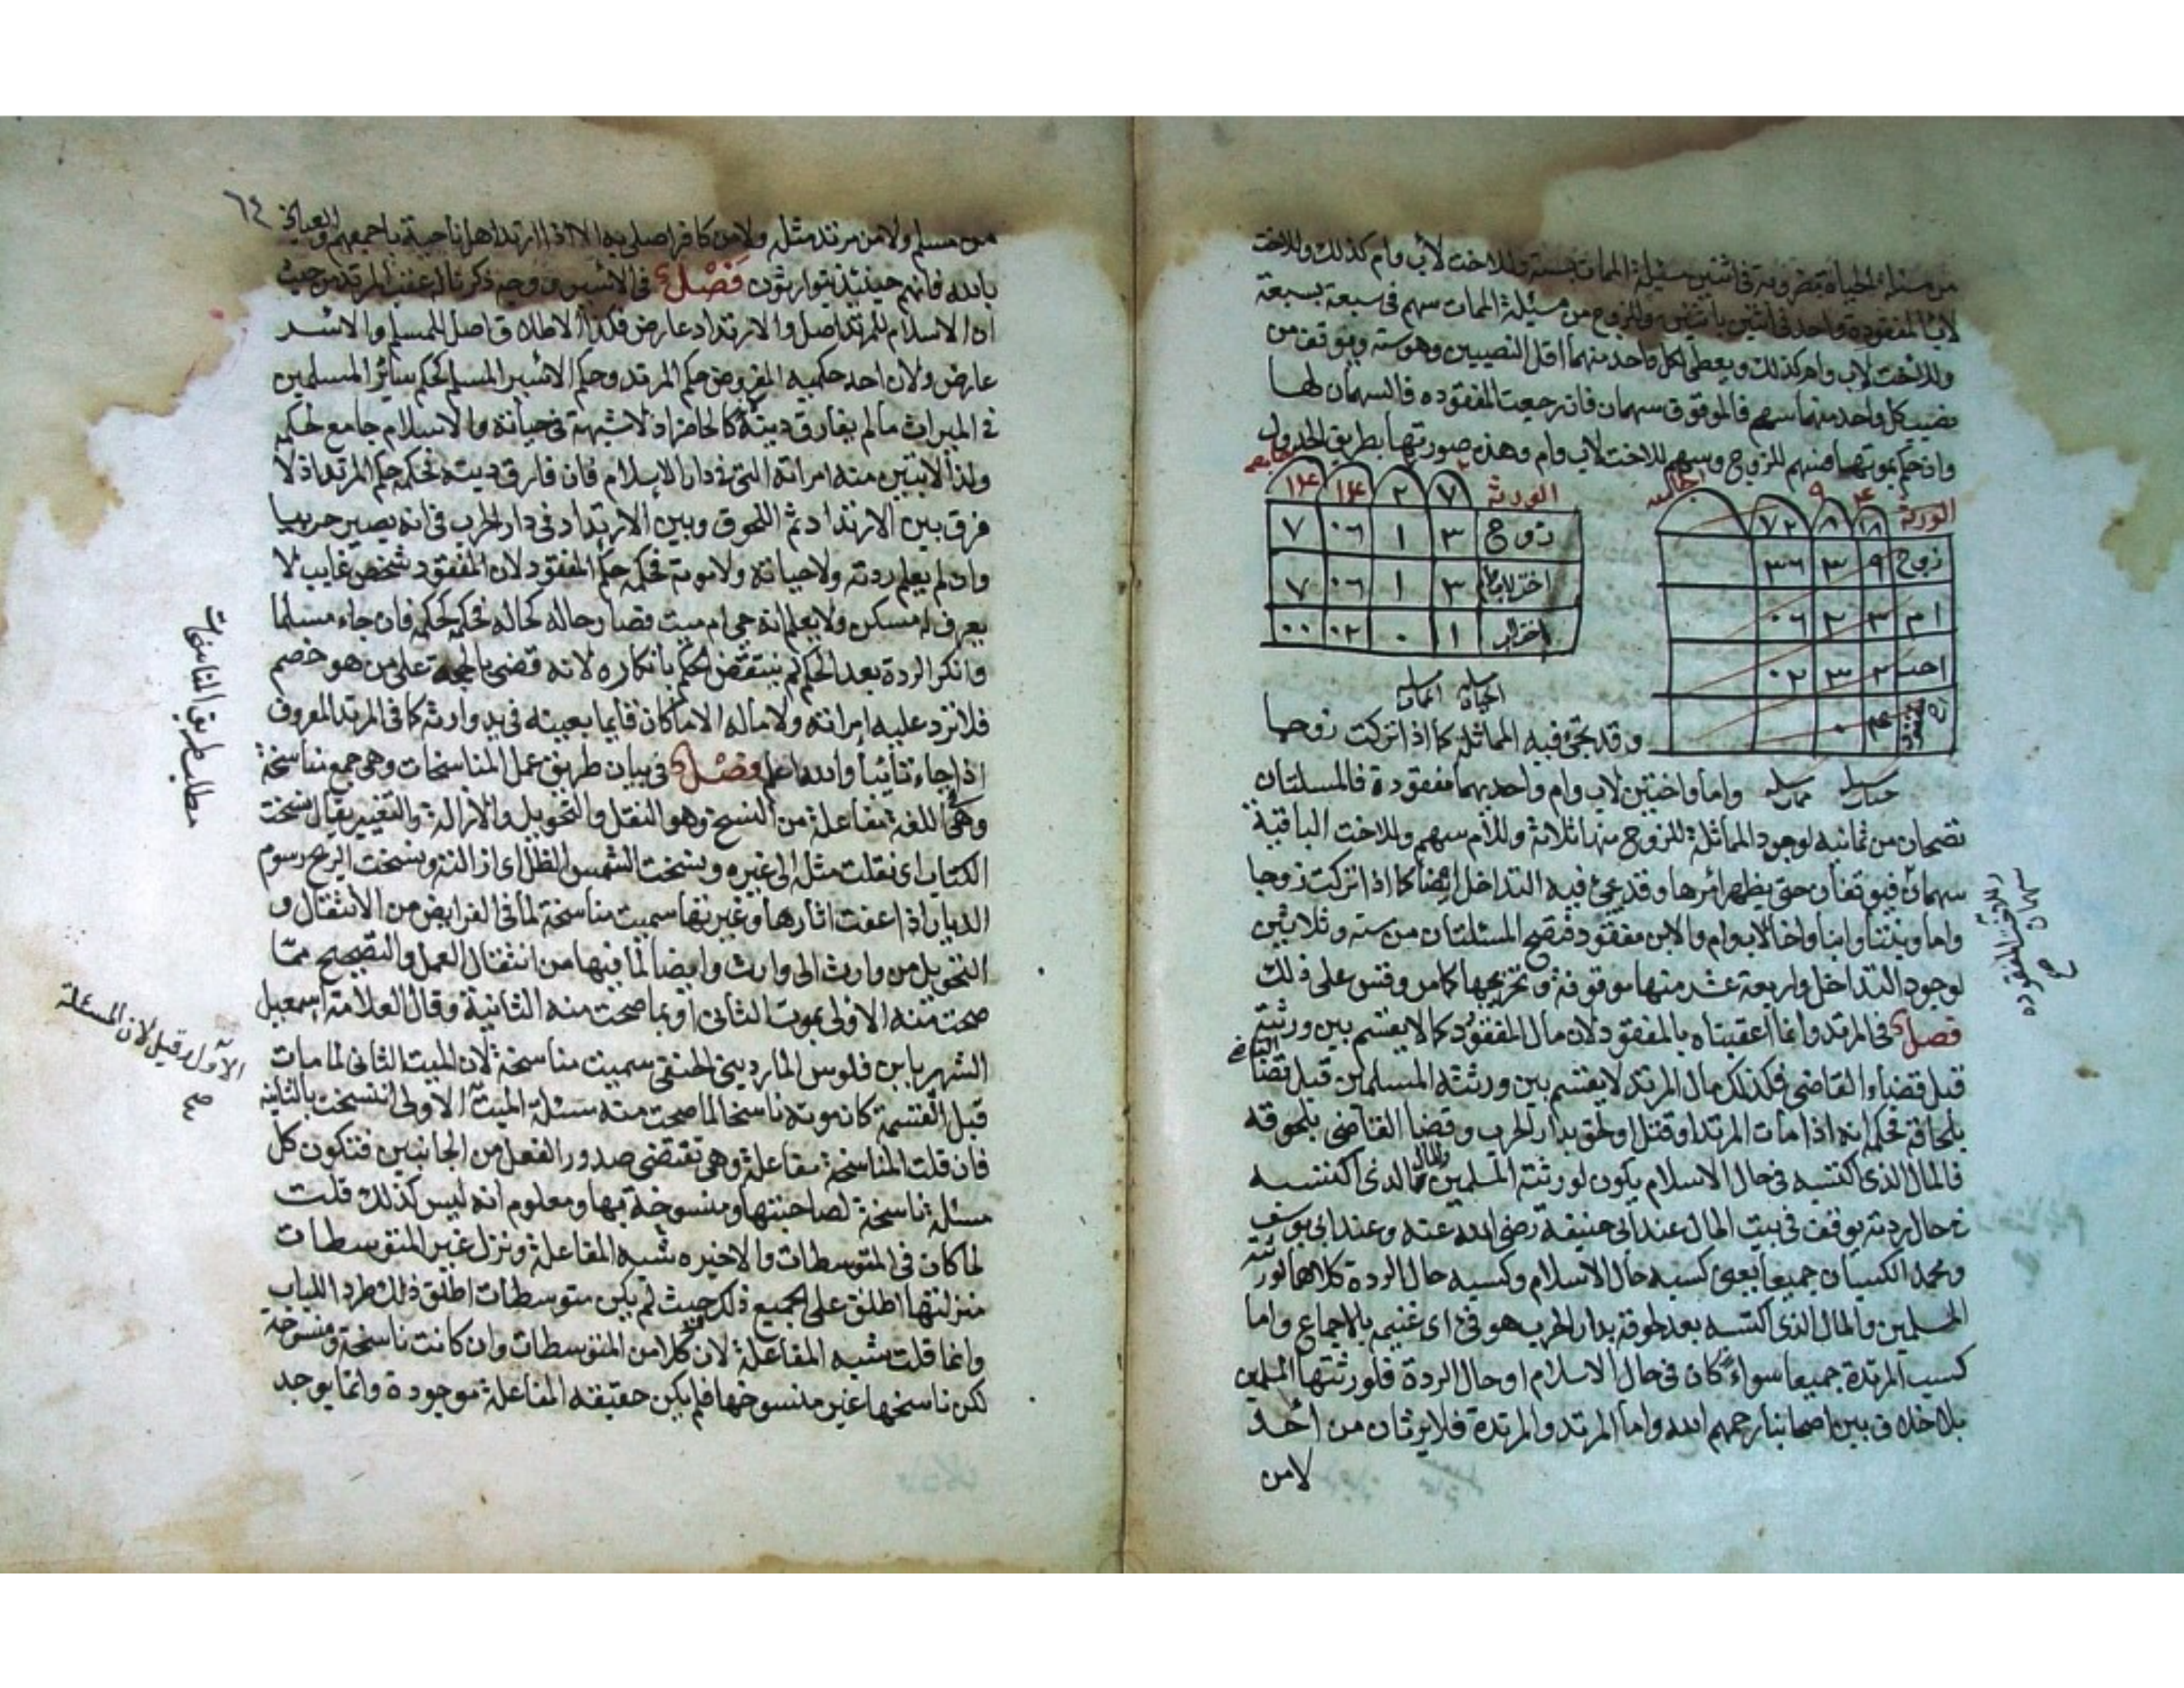 من مسئلة الحياة مضروبة في اثنين مسئلة الممات بستة وللاخت لاب وام كذلك وللاخت
لاب المفقودة واحد في اثنين باثنين وللزوج من مسئلة الممات سهم في سبعة بسبعة
وللاخت لاب وام كذلك ويعطى لكل واحد منهما اقل النصيبين وهو ستة ويوقف من
نصيب كل واحد منهما سهم فالموقوف سهمان فان رجعت المفقوده فالسهمان لها
وان حكم بموتها فسهم للزوج وسهم للاخت لاب وام وهذه صورتها بطريق الجدول
الورثة ٧ ٢ ١٤ ١٤
زوج ٣ ١ ٠٦ ٧
اخت لاب وام ٣ ١ ٠٦ ٧
اخت لاب ١ ٠ ٠٢ ٠٠
الحياة الممات
الورثة ١٨ ٨ ٧٢
زوج ٩ ٣ ٣٦
ام ٣ ٢ ٠٦
اخت ٢ ٣ ٠٢
اخ مفقود ٤ ٠
وقد تجئ فيه المماثلة كما اذا تركت زوجا
واما واختين لاب وام واحديهما مفقودة فالمسئلتان
تصحان من ثمانية لوجود المماثلة للزوج منها ثلاثة وللام سهم وللاخت الباقية
سهمان فيوقفان حتى يظهر امرها وقد يجئ فيه التداخل ايضا كما اذا تركت زوجا
واما وبنتا وابنا واخا لاب وام والابن مفقود فتصح المسئلتان من ستة وثلاثين
لوجود التداخل واربعة عشر منها موقوفة وتخريجها كما مر وقس على ذلك
فصل في المرتد وانما اعقبناه بالمفقود لان مال المفقود كما لا يقسم بين ورثته
قبل قضاء القاضي فكذلك مال المرتد لا يقسم بين ورثته المسلمين قبل قضاء القاضي
بلحاقه فحكمه انه اذا مات المرتد او قتل او لحق بدار الحرب وقضا القاضي بلحوقه
فالمال الذي اكتسبه في حال الاسلام يكون لورثته المسلمين والمال الذي اكتسبه
في حال ردته يوقف في بيت المال عند ابي حنيفة رضي الله عنه وعند ابي يوسف
ومحمد الكسبان جميعا يعني كسبه حال الاسلام وكسبه حال الردة كلاهما لورثته
المسلمين والمال الذي اكتسبه بعد لحوقه بدار الحرب هو فئ اي غنيمة بالاجماع واما
كسب المرتدة جميعا سواء كان في حال الاسلام او حال الردة فلورثتها المسلمين
بلا خلاف بين اصحابنا رحمهم الله واما المرتد والمرتدة فلا يرثان من احد
لا من
سهمان
وللاخت المفقوده
صح
٦٤
من مسلم ولا من مرتد مثله ولا من كافر اصلي به الا اذا ارتد اهل ناحية باجمعهم والعياذ
بالله فانهم حينئذ يتوارثون فصل في الاسير ووجه ذكرنا له عقب المرتد من حيث
ان الاسلام للمرتد اصل والارتداد عارض فكذا الاطلاق اصل للمسلم والاسر
عارض ولان احد حكميه المفروض حكم المرتد وحكم الاسير المسلم كحكم سائر المسلمين
في الميراث ما لم يفارق دينه كالحاضر اذ لا شبهة في حياته والاسلام جامع لحكمه
ولذا لا تبين منه امراته التي في دار الاسلام فان فارق دينه فحكمه حكم المرتد اذ لا
فرق بين الارتداد ثم اللحوق وبين الارتداد في دار الحرب في انه يصير حربيا
وان لم يعلم ردته ولا حياته ولا موته فحكمه حكم المفقود لان المفقود شخص غايب لا
يعرف له مسكن ولا يعلم انه حي ام ميت فصار حاله كحاله فحكمه كحكمه فان جاء مسلما
وانكر الردة بعد الحكم لم ينتقض الحكم بانكاره لانه قضى بالحجة على من هو خصم
فلا ترد عليه امراته ولا ماله الا ما كان قايما بعينه في يد وارثه كما في المرتد المعروف
اذا جاء تائبا والله اعلم فصل في بيان طريق عمل المناسخات وهي جمع مناسخة
وهي في اللغة مفاعلة من النسخ وهو النقل والتحويل والازالة والتغيير يقال نسخت
الكتاب اي نقلت مثله الى غيره ونسخت الشمس الظل اي ازالته ونسخت الريح رسوم
الديار اذا عفت اثارها وغيرتها سميت مناسخة لما في الفرايض من الانتقال و
التحويل من وارث الى وارث وايضا لما فيها من انتقال العمل والتصحيح مما
صحت منه الاولى بموت الثاني او بما صحت منه الثانية وقال العلامة اسمعيل
الشهير بابن فلوس المارديني الحنفي سميت مناسخة لان الميت الثاني لما مات
قبل القسمة كان موته ناسخا لما صحت منه مسئلة الميت الاولى انتسخت بالثانية
فان قلت المناسخة مفاعلة وهي تقتضي صدور الفعل من الجانبين فتكون كل
مسئلة ناسخة لصاحبتها ومنسوخة بها ومعلوم انه ليس كذلك قلت
لما كان في المتوسطات والاخيره شبه المفاعلة ونزل غير المتوسطات
منزلتها اطلق على الجميع ذلك وحيث لم يكن متوسطات اطلق ذلك طردا للباب
وانما قلت شبه المفاعلة لان كلا من المتوسطات وان كانت ناسخة ومنسوخة
لكن ناسخها غير منسوخها فلم يكن حقيقة المفاعلة موجودة وانما يوجد
مطلب طريق المناسخات
الاول وقيل لان المسئلة
صح